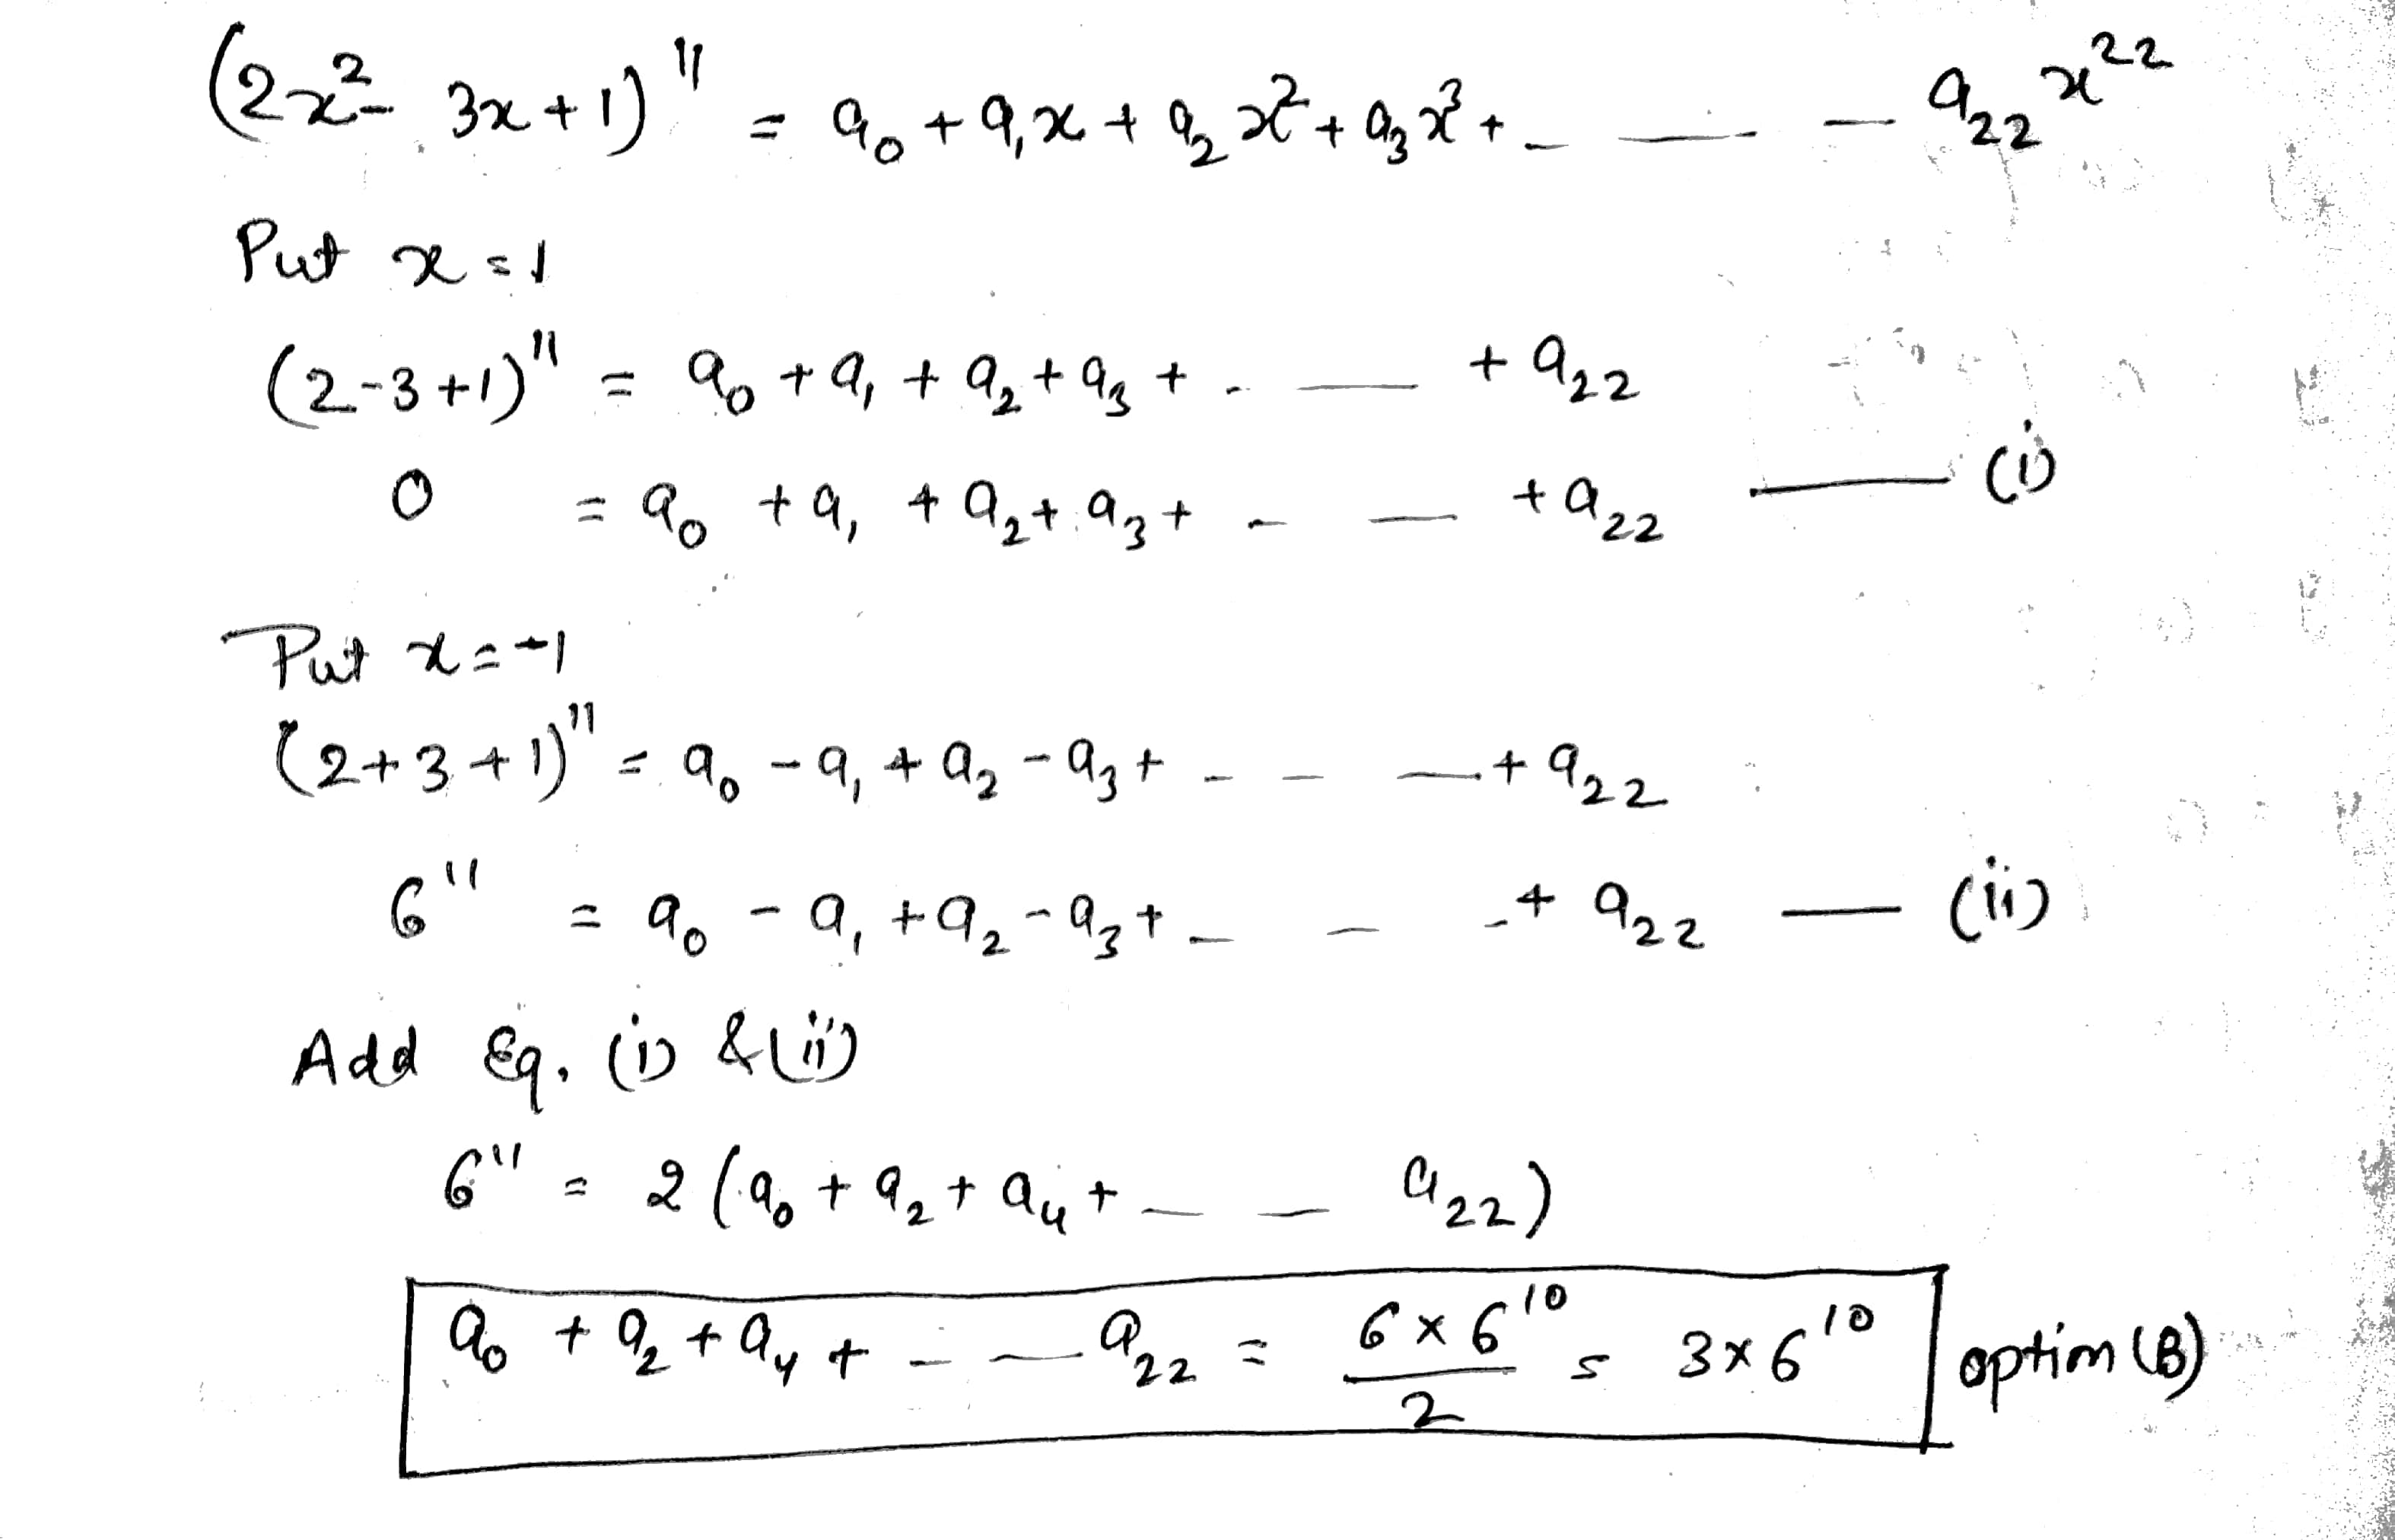 (2x² - 3x + 1)¹¹ = a₀ + a₁x + a₂x² + a₃x³ + - — — a₂₂ x²²
Put x = 1
(2-3+1)¹¹ = a₀ + a₁ + a₂ + a₃ + - — + a₂₂
0 = a₀ + a₁ + a₂ + a₃ + - — + a₂₂ — (i)
Put x = -1
(2+3+1)¹¹ = a₀ - a₁ + a₂ - a₃ + - - — + a₂₂
6¹¹ = a₀ - a₁ + a₂ - a₃ + - - - + a₂₂ — (ii)
Add Eq. (i) & (ii)
6¹¹ = 2 (a₀ + a₂ + a₄ + - - a₂₂)
a₀ + a₂ + a₄ + - — a₂₂ = (6 × 6¹⁰)/2 = 3 × 6¹⁰ option (B)